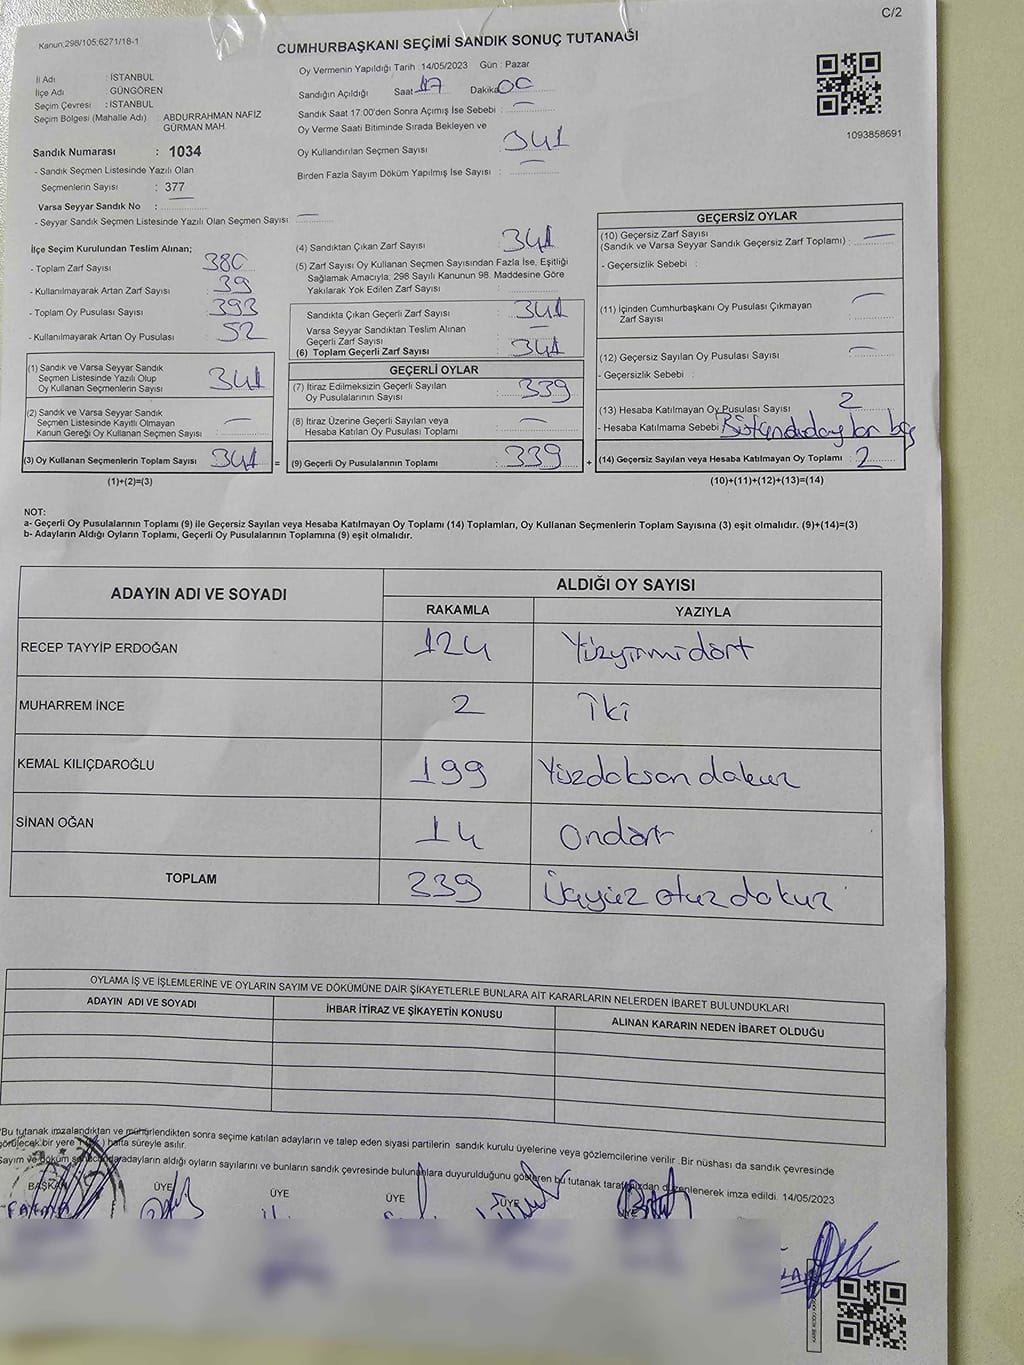 C/2
Kanun,298/105,6271/18-1
CUMHURBAŞKANI SEÇİMİ SANDIK SONUÇ TUTANAĞI
İl Adı : İSTANBUL
İlçe Adı : GÜNGÖREN
Seçim Çevresi : İSTANBUL
Seçim Bölgesi (Mahalle Adı) ABDURRAHMAN NAFİZ
GÜRMAN MAH.
Sandık Numarası : 1034
- Sandık Seçmen Listesinde Yazılı Olan
Seçmenlerin Sayısı : 377
Varsa Seyyar Sandık No : —
- Seyyar Sandık Seçmen Listesinde Yazılı Olan Seçmen Sayısı: —
Oy Vermenin Yapıldığı Tarih : 14/05/2023 Gün : Pazar
Sandığın Açıldığı Saat 17 Dakika 00
Sandık Saat 17:00'den Sonra Açımış İse Sebebi : —
Oy Verme Saati Bitiminde Sırada Bekleyen ve
Oy Kullandırılan Seçmen Sayısı : 341
Birden Fazla Sayım Döküm Yapılmış İse Sayısı : —
1093858691
İlçe Seçim Kurulundan Teslim Alınan;
- Toplam Zarf Sayısı : 380
- Kullanılmayarak Artan Zarf Sayısı : 39
- Toplam Oy Pusulası Sayısı : 393
- Kullanılmayarak Artan Oy Pusulası : 52
(1) Sandık ve Varsa Seyyar Sandık
Seçmen Listesinde Yazılı Olup
Oy Kullanan Seçmenlerin Sayısı : 341
(2) Sandık ve Varsa Seyyar Sandık
Seçmen Listesinde Kayıtlı Olmayan
Kanun Gereği Oy Kullanan Seçmen Sayısı : —
(3) Oy Kullanan Seçmenlerin Toplam Sayısı : 341 =
(1)+(2)=(3)
(4) Sandıktan Çıkan Zarf Sayısı : 341
(5) Zarf Sayısı Oy Kullanan Seçmen Sayısından Fazla İse, Eşitliği
Sağlamak Amacıyla; 298 Sayılı Kanunun 98. Maddesine Göre
Yakılarak Yok Edilen Zarf Sayısı :
Sandıkta Çıkan Geçerli Zarf Sayısı : 341
Varsa Seyyar Sandıktan Teslim Alınan
Geçerli Zarf Sayısı : —
(6) Toplam Geçerli Zarf Sayısı : 341
GEÇERLİ OYLAR
(7) İtiraz Edilmeksizin Geçerli Sayılan
Oy Pusulalarının Sayısı : 339
(8) İtiraz Üzerine Geçerli Sayılan veya
Hesaba Katılan Oy Pusulası Toplamı : —
(9) Geçerli Oy Pusulalarının Toplamı : 339 +
GEÇERSİZ OYLAR
(10) Geçersiz Zarf Sayısı
(Sandık ve Varsa Seyyar Sandık Geçersiz Zarf Toplamı) : —
- Geçersizlik Sebebi :
(11) İçinden Cumhurbaşkanı Oy Pusulası Çıkmayan
Zarf Sayısı : —
(12) Geçersiz Sayılan Oy Pusulası Sayısı : —
- Geçersizlik Sebebi :
(13) Hesaba Katılmayan Oy Pusulası Sayısı : 2
- Hesaba Katılmama Sebebi
(14) Geçersiz Sayılan veya Hesaba Katılmayan Oy Toplamı : 2
(10)+(11)+(12)+(13)=(14)
NOT:
a- Geçerli Oy Pusulalarının Toplamı (9) ile Geçersiz Sayılan veya Hesaba Katılmayan Oy Toplamı (14) Toplamları, Oy Kullanan Seçmenlerin Toplam Sayısına (3) eşit olmalıdır. (9)+(14)=(3)
b- Adayların Aldığı Oyların Toplamı, Geçerli Oy Pusulalarının Toplamına (9) eşit olmalıdır.
ADAYIN ADI VE SOYADI ALDIĞI OY SAYISI
RAKAMLA YAZIYLA
RECEP TAYYİP ERDOĞAN 124 Yüzyirmidört
MUHARREM İNCE 2 İki
KEMAL KILIÇDAROĞLU 199 Yüzdoksan dokuz
SİNAN OĞAN 14 Ondört
TOPLAM 339 Üçyüz otuz dokuz
OYLAMA İŞ VE İŞLEMLERİNE VE OYLARIN SAYIM VE DÖKÜMÜNE DAİR ŞİKAYETLERLE BUNLARA AİT KARARLARIN NELERDEN İBARET BULUNDUKLARI
ADAYIN ADI VE SOYADI İHBAR İTİRAZ VE ŞİKAYETİN KONUSU ALINAN KARARIN NEDEN İBARET OLDUĞU
Bu tutanak imzalandıktan ve mühürlendikten sonra seçime katılan adayların ve talep eden siyasi partilerin sandık kurulu üyelerine veya gözlemcilerine verilir .Bir nüshası da sandık çevresinde
görülecek bir yere hafta süreyle asılır.
Sayım ve döküm adayların aldığı oyların sayılarını ve bunların sandık çevresinde bulunanlara duyurulduğunu gösteren bu tutanak tarafımızdan düzenlenerek imza edildi. 14/05/2023
BAŞKAN ÜYE ÜYE ÜYE ÜYE ÜYE
FATMA